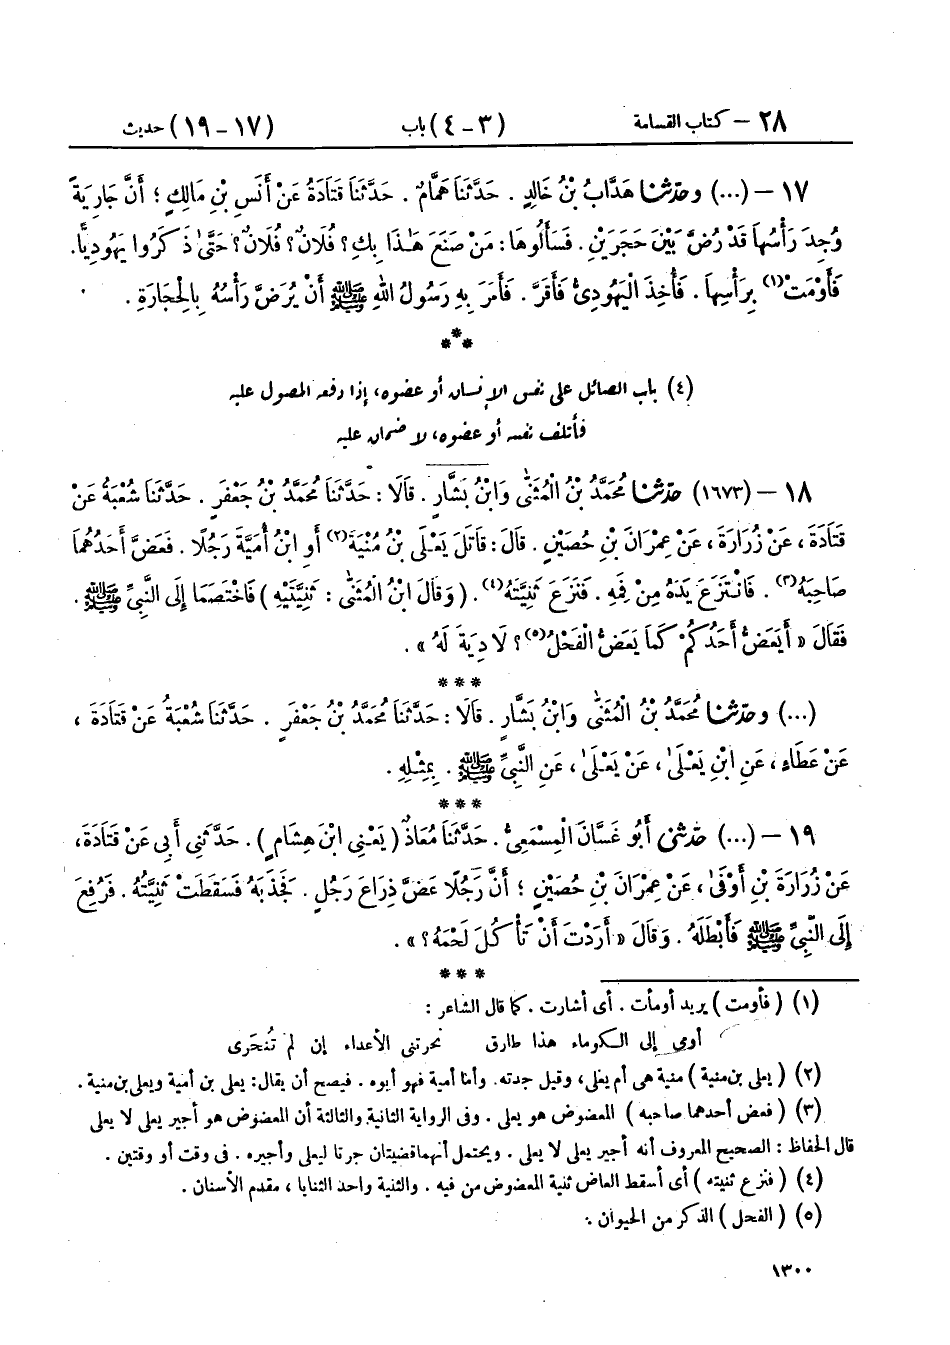 ٢٨ – كتاب القسامة (٣ – ٤) باب (١٧ – ١٩) حديث
١٧ – (...) وحدّثنا هَدَّابُ بْنُ خَالِدٍ . حَدَّثَنَا هَمَّامٌ . حَدَّثَنَا قَتَادَةُ عَنْ أَنَسِ بْنِ مَالِكٍ ؛ أَنَّ جَارِيَةً
وُجِدَ رَأْسُهَا قَدْ رُضَّ بَيْنَ حَجَرَيْنِ . فَسَأَلُوهَا : مَنْ صَنَعَ هٰذَا بِكِ ؟ فُلَانٌ ؟ فُلَانٌ ؟ حَتَّىٰ ذَكَرُوا يَهُودِيًّا .
فَأَوْمَتْ(١) بِرَأْسِهَا . فَأُخِذَ الْيَهُودِىُّ فَأَقَرَّ . فَأَمَرَ بِهِ رَسُولُ اللهِ ﷺ أَنْ يُرَضَّ رَأْسُهُ بِالْحِجَارَةِ .
***
(٤) باب الصائل على نفس الإنسان أو عضوه، إذا دفعه المصول عليه
فأتلف نفسه أو عضوه، لا ضمان عليه
١٨ – (١٦٧٣) حدّثنا مُحَمَّدُ بْنُ الْمُثَنَّىٰ وَابْنُ بَشَّارٍ . قَالَا : حَدَّثَنَا مُحَمَّدُ بْنُ جَعْفَرٍ . حَدَّثَنَا شُعْبَةُ عَنْ
قَتَادَةَ ، عَنْ زُرَارَةَ ، عَنْ عِمْرَانَ بْنِ حُصَيْنٍ . قَالَ : قَاتَلَ يَعْلَى بْنُ مُنْيَةَ(٢) أَوِ ابْنُ أُمَيَّةَ رَجُلًا . فَعَضَّ أَحَدُهُمَا
صَاحِبَهُ(٣) . فَانْتَزَعَ يَدَهُ مِنْ فَمِهِ . فَنَزَعَ ثَنِيَّتَهُ(٤) . ( وَقَالَ ابْنُ الْمُثَنَّىٰ : ثَنِيَّتَيْهِ ) فَاخْتَصَمَا إِلَى النَّبِىِّ ﷺ .
فَقَالَ « أَيَعَضُّ أَحَدُكُمْ كَمَا يَعَضُّ الْفَحْلُ(٥) ؟ لَا دِيَةَ لَهُ » .
***
(...) وحدّثنا مُحَمَّدُ بْنُ الْمُثَنَّىٰ وَابْنُ بَشَّارٍ . قَالَا : حَدَّثَنَا مُحَمَّدُ بْنُ جَعْفَرٍ . حَدَّثَنَا شُعْبَةُ عَنْ قَتَادَةَ ،
عَنْ عَطَاءٍ ، عَنِ ابْنِ يَعْلَىٰ ، عَنْ يَعْلَىٰ ، عَنِ النَّبِىِّ ﷺ . بِمِثْلِهِ .
***
١٩ – (...) حدّثنى أَبُو غَسَّانَ الْمِسْمَعِىُّ . حَدَّثَنَا مُعَاذٌ ( يَعْنِى ابْنَ هِشَامٍ ) . حَدَّثَنِى أَبِى عَنْ قَتَادَةَ ،
عَنْ زُرَارَةَ بْنِ أَوْفَىٰ ، عَنْ عِمْرَانَ بْنِ حُصَيْنٍ ؛ أَنَّ رَجُلًا عَضَّ ذِرَاعَ رَجُلٍ . فَجَذَبَهُ فَسَقَطَتْ ثَنِيَّتُهُ . فَرُفِعَ
إِلَى النَّبِىِّ ﷺ فَأَبْطَلَهُ . وَقَالَ « أَرَدْتَ أَنْ تَأْكُلَ لَحْمَهُ ؟ » .
***
(١) ( فأومت ) يريد أومأت . أى أشارت . كما قال الشاعر :
أومى إلى الكوماء هذا طارق نحرتنى الأعداء إن لم تُنْحَرى
(٢) ( يعلى بن منية ) منية هى أم يعلى، وقيل جدته. وأما أمية فهو أبوه . فيصح أن يقال: يعلى بن أمية ويعلى بن منية .
(٣) ( فعض أحدهما صاحبه ) المعضوض هو يعلى . وفى الرواية الثانية والثالثة أن المعضوض هو أجير يعلى لا يعلى
قال الحفاظ : الصحيح المعروف أنه أجير يعلى لا يعلى . ويحتمل أنهما قضيتان جرتا ليعلى وأجيره . فى وقت أو وقتين .
(٤) ( فنزع ثنيته ) أى أسقط العاض ثنية المعضوض من فيه . والثنية واحد الثنايا ، مقدم الأسنان .
(٥) ( الفحل ) الذكر من الحيوان .
١٣٠٠